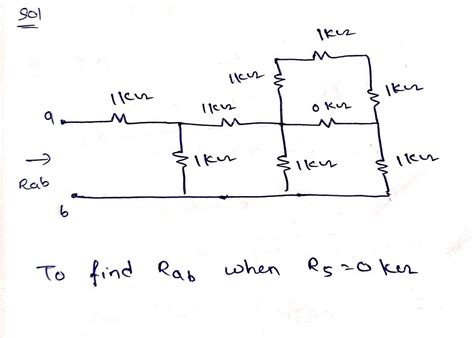 Sol
1kΩ
1kΩ
1kΩ
1kΩ
1kΩ
0kΩ
a
1kΩ
1kΩ
1kΩ
Rab
b
To find Rab when R5=0 kΩ